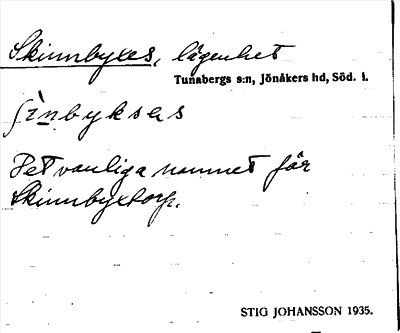 Skinnbyxes, lägenhet
Tunabergs s:n, Jönåkers hd, Söd. l.
ʃìnbyksɐs
Det vanliga namnet för
Skinnbyxtorp.
STIG JOHANSSON 1935.